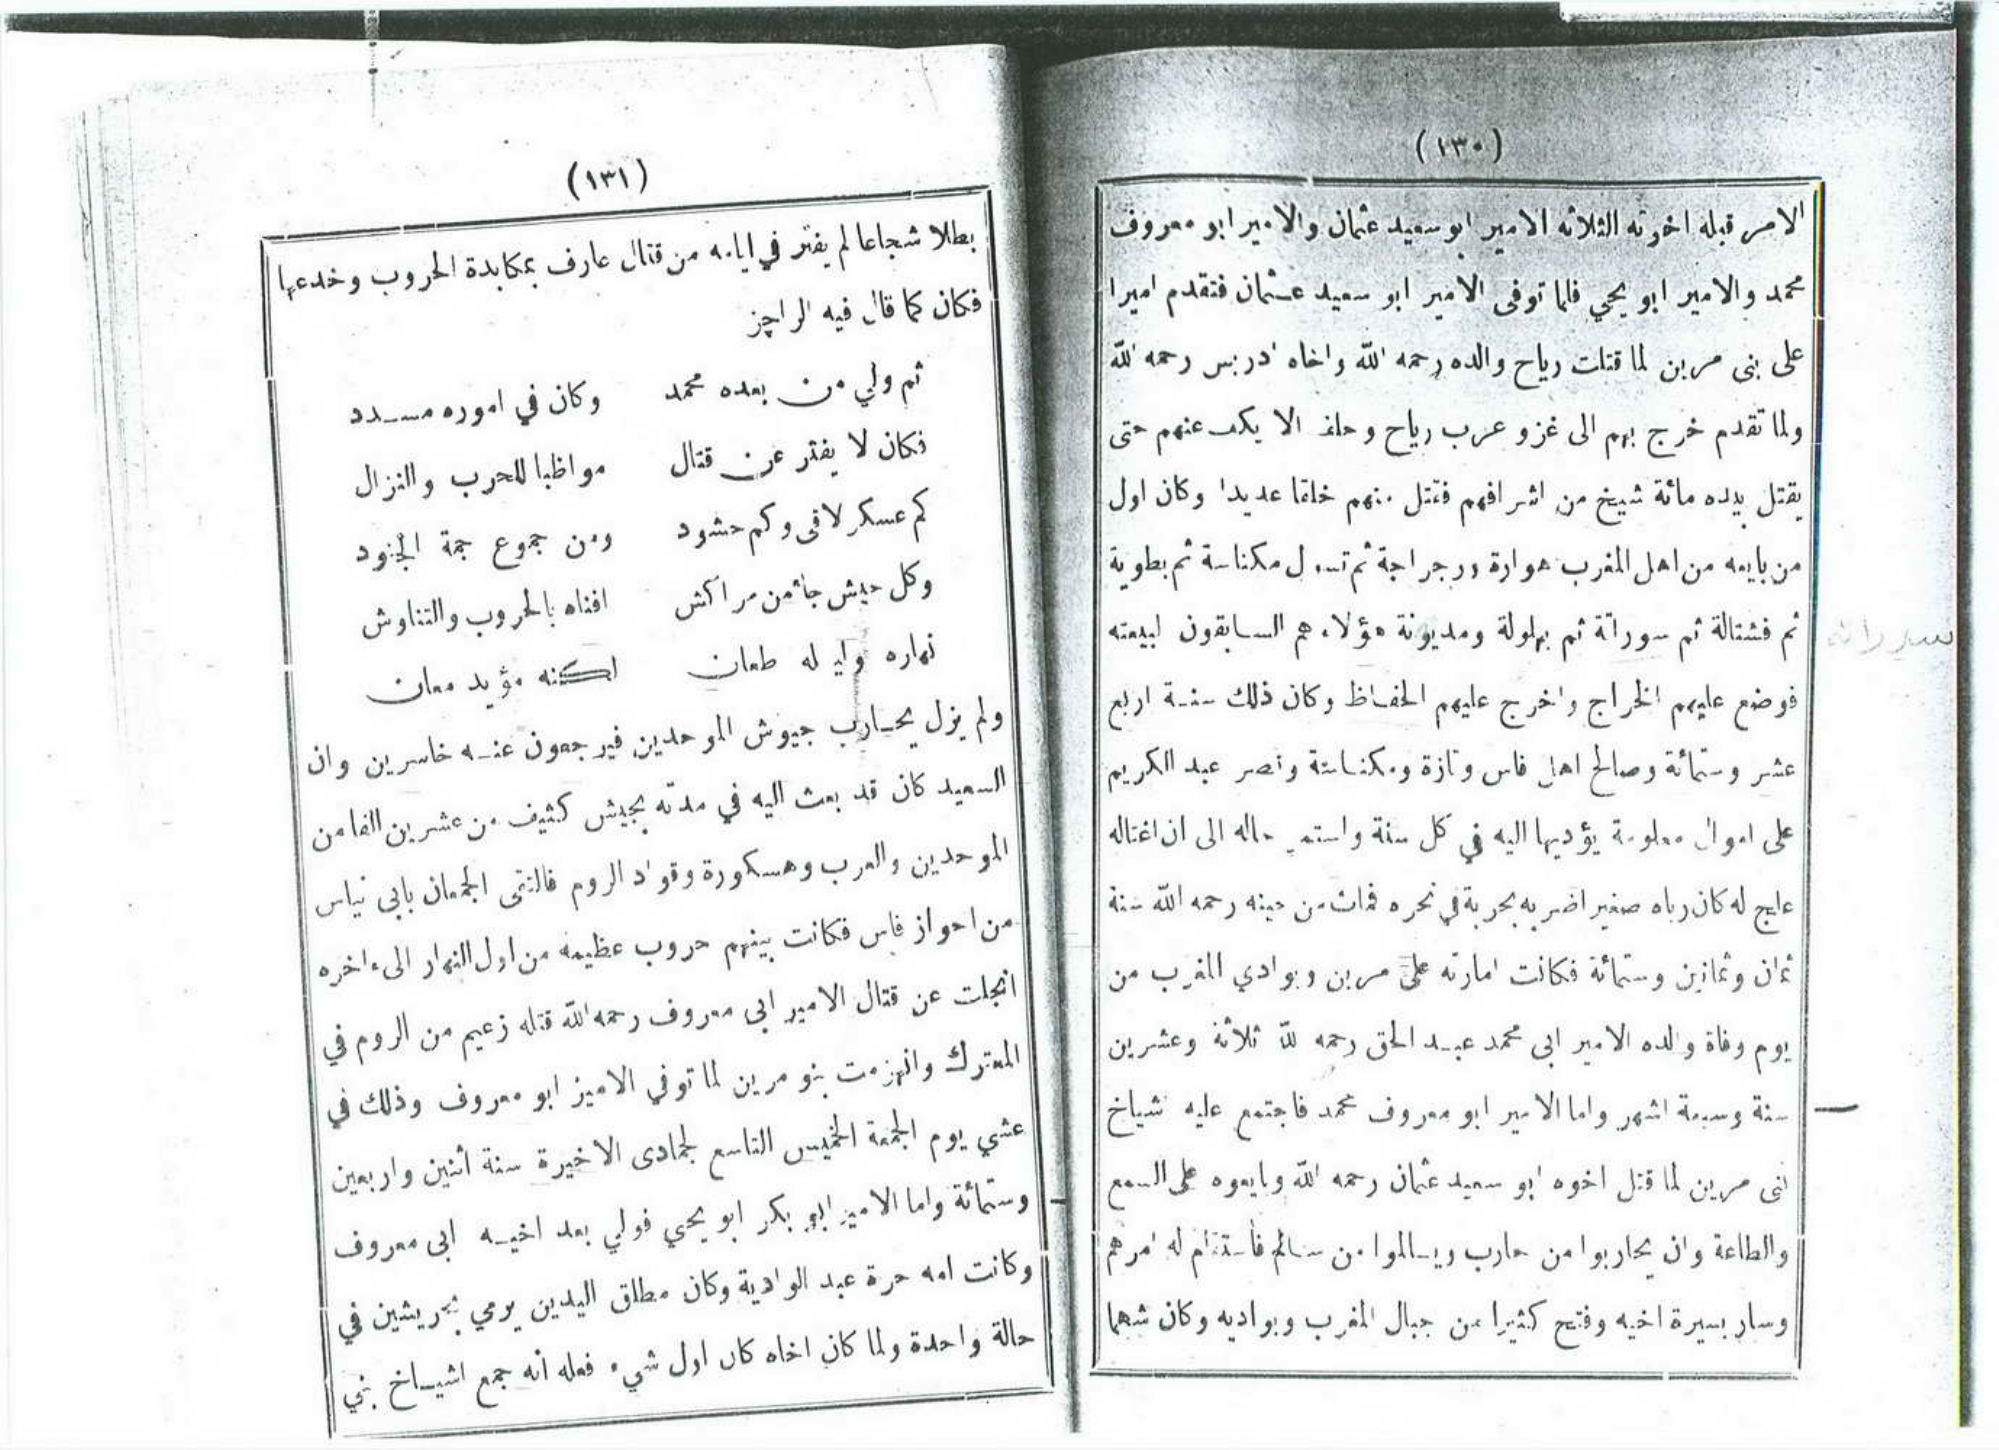 (١٣٠)
الامر قبله اخوته الثلاثه الامير ابو سعيد عثمان والامير ابو معروف
محمد والامير ابو يحي فلما توفى الامير ابو سعيد عثمان فتقدم اميرا
على بنى مرين لما قتلت رياح والده رحمه الله واخاه ادريس رحمه الله
ولما تقدم خرج بهم الى غزو عرب رياح وحلف الا يكف عنهم حتى
يقتل بيده مائة شيخ من اشرافهم فقتل منهم خلقا عديدا وكان اول
من بايعه من اهل المغرب هوارة ورجراجة ثم تسول مكناسة ثم بطوية
ثم فشتالة ثم سوراتة ثم بهلولة ومديونة هؤلاء هم السابقون لبيعته
سدراته
فوضع عليهم الخراج واخرج عليهم الحفاظ وكان ذلك سنة اربع
عشر وستمائة وصالح اهل فاس وتازة ومكناسة وقصر عبد الكريم
على اموال معلومة يؤديها اليه في كل سنة واستمر حاله الى ان اغتاله
علج له كان رباه صغيرا ضربه بحربة في نحره فمات من حينه رحمه الله سنة
ثمان وثمانين وستمائة فكانت امارته على مرين وبوادي المغرب من
يوم وفاة والده الامير ابى محمد عبد الحق رحمه لله ثلاثة وعشرين
سنة وسبعة اشهر واما الامير ابو معروف محمد فاجتمع عليه شياخ
بنى مرين لما قتل اخوه ابو سعيد عثمان رحمه الله وبايعوه على السمع
والطاعة وان يحاربوا من حارب ويسالموا من سالم فاستقام له امرهم
وسار بسيرة اخيه وفتح كثيرا من جبال المغرب وبواديه وكان شهما
(١٣١)
بطلا شجاعا لم يفتر في ايامه من قتال عارف بمكابدة الحروب وخدعها
فكان كما قال فيه الراجز
ثم ولي من بعده محمد وكان في اموره مسدد
فكان لا يفتر عن قتال مواظبا للحرب والنزال
كم عسكر لاقى وكم حشود ومن جموع جمة الجنود
وكل جيش جاء من مراكش افناه بالحروب والتناوش
نهاره وليله طعان لكنه مؤيد معان
ولم يزل يحارب جيوش الموحدين فيرجعون عنه خاسرين وان
السعيد كان قد بعث اليه في مدته بجيش كثيف من عشرين الفا من
الموحدين والعرب وهسكورة وقواد الروم فالتقى الجمعان بابى نياس
من احواز فاس فكانت بينهم حروب عظيمه من اول النهار الىء اخره
انجلت عن قتال الامير ابى معروف رحمه الله قتله زعيم من الروم في
المعترك وانهزمت بنو مرين لما توفي الامير ابو معروف وذلك في
عشي يوم الجمعة الخميس التاسع لجمادى الاخيرة سنة أثنين واربعين
وستمائة واما الامير ابو بكر ابو يحي فولي بعد اخيه ابى معروف
وكانت امه حرة عبد الوادية وكان مطلق اليدين يرمي بحريشين في
حالة واحدة ولما كان اخاه كان اول شيء فعله أنه جمع اشياخ بني